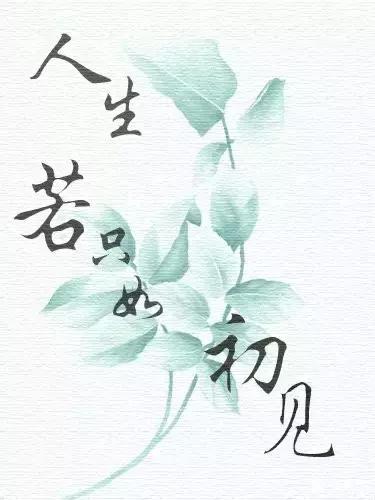 人生
若只如
初见